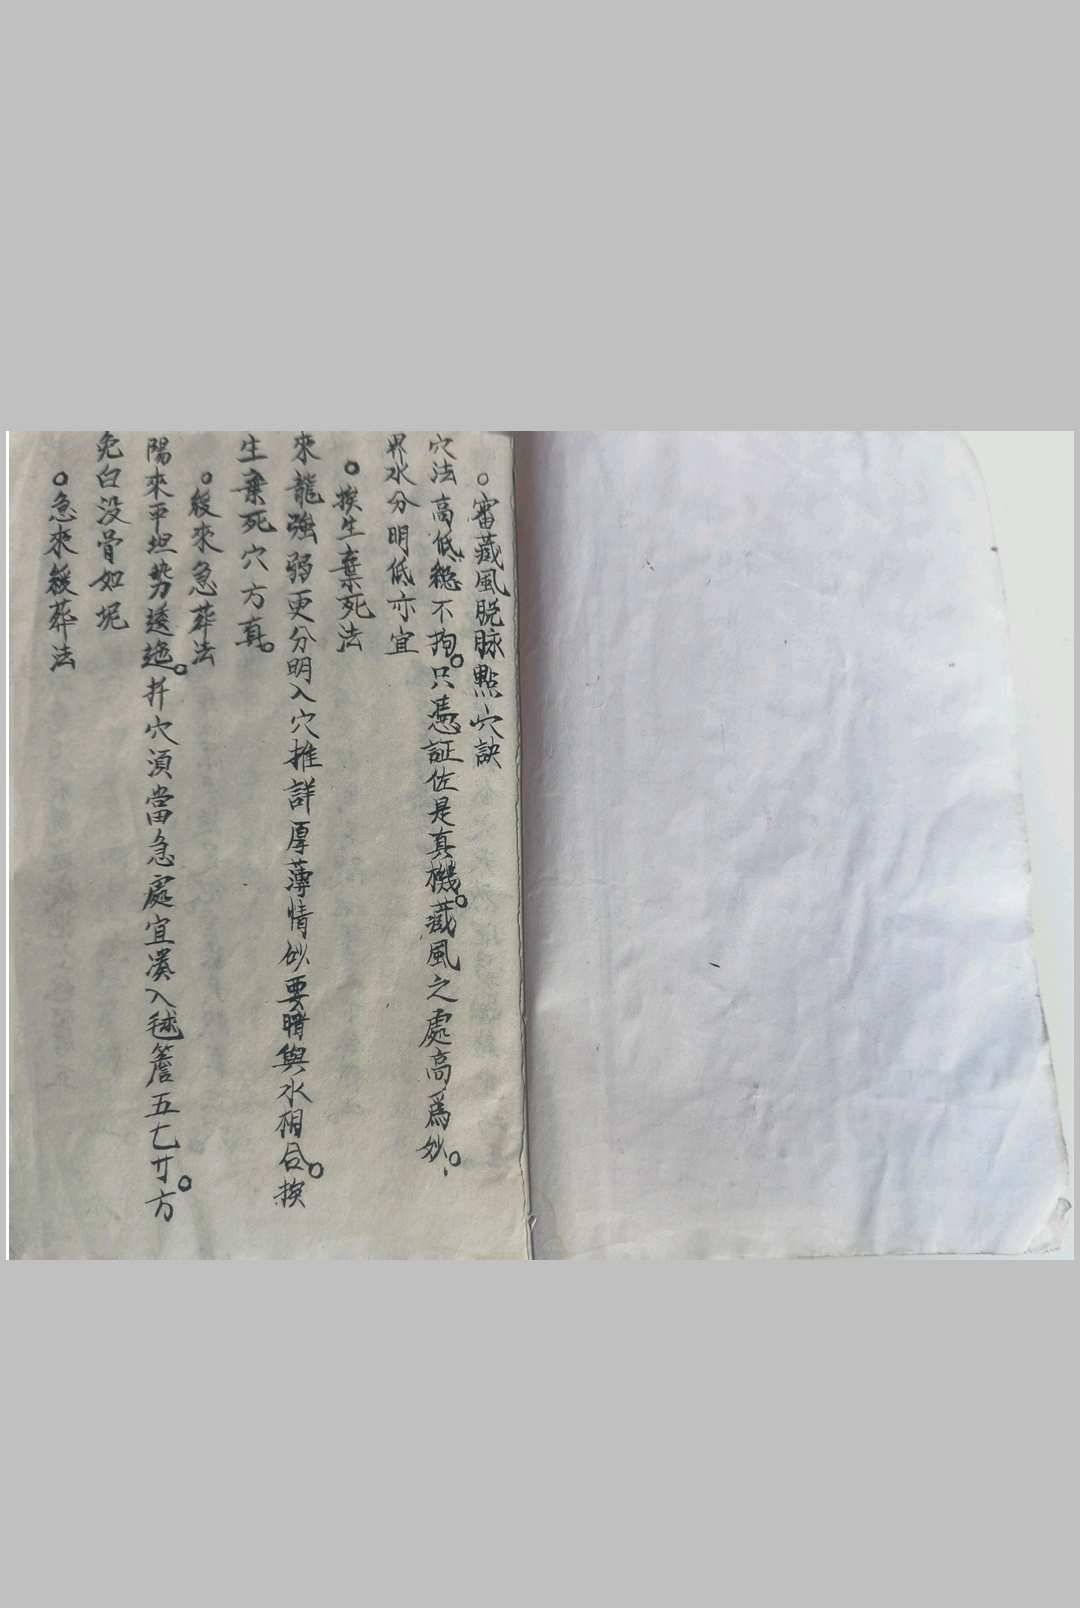 ○審藏風脱脉點穴訣
穴法高低總不拘。只憑証佐是真機。藏風之處高爲妙。
界水分明低亦宜
○挨生棄死法
來龍強弱更分明入穴推詳厚薄情砂要暗與水相合。挨
生棄死穴方真。
○緩來急葬法
陽來平坦勢逶迤。扦穴須當急處宜湊入毬簷五七寸。方
免白没骨如坭
○急來緩葬法